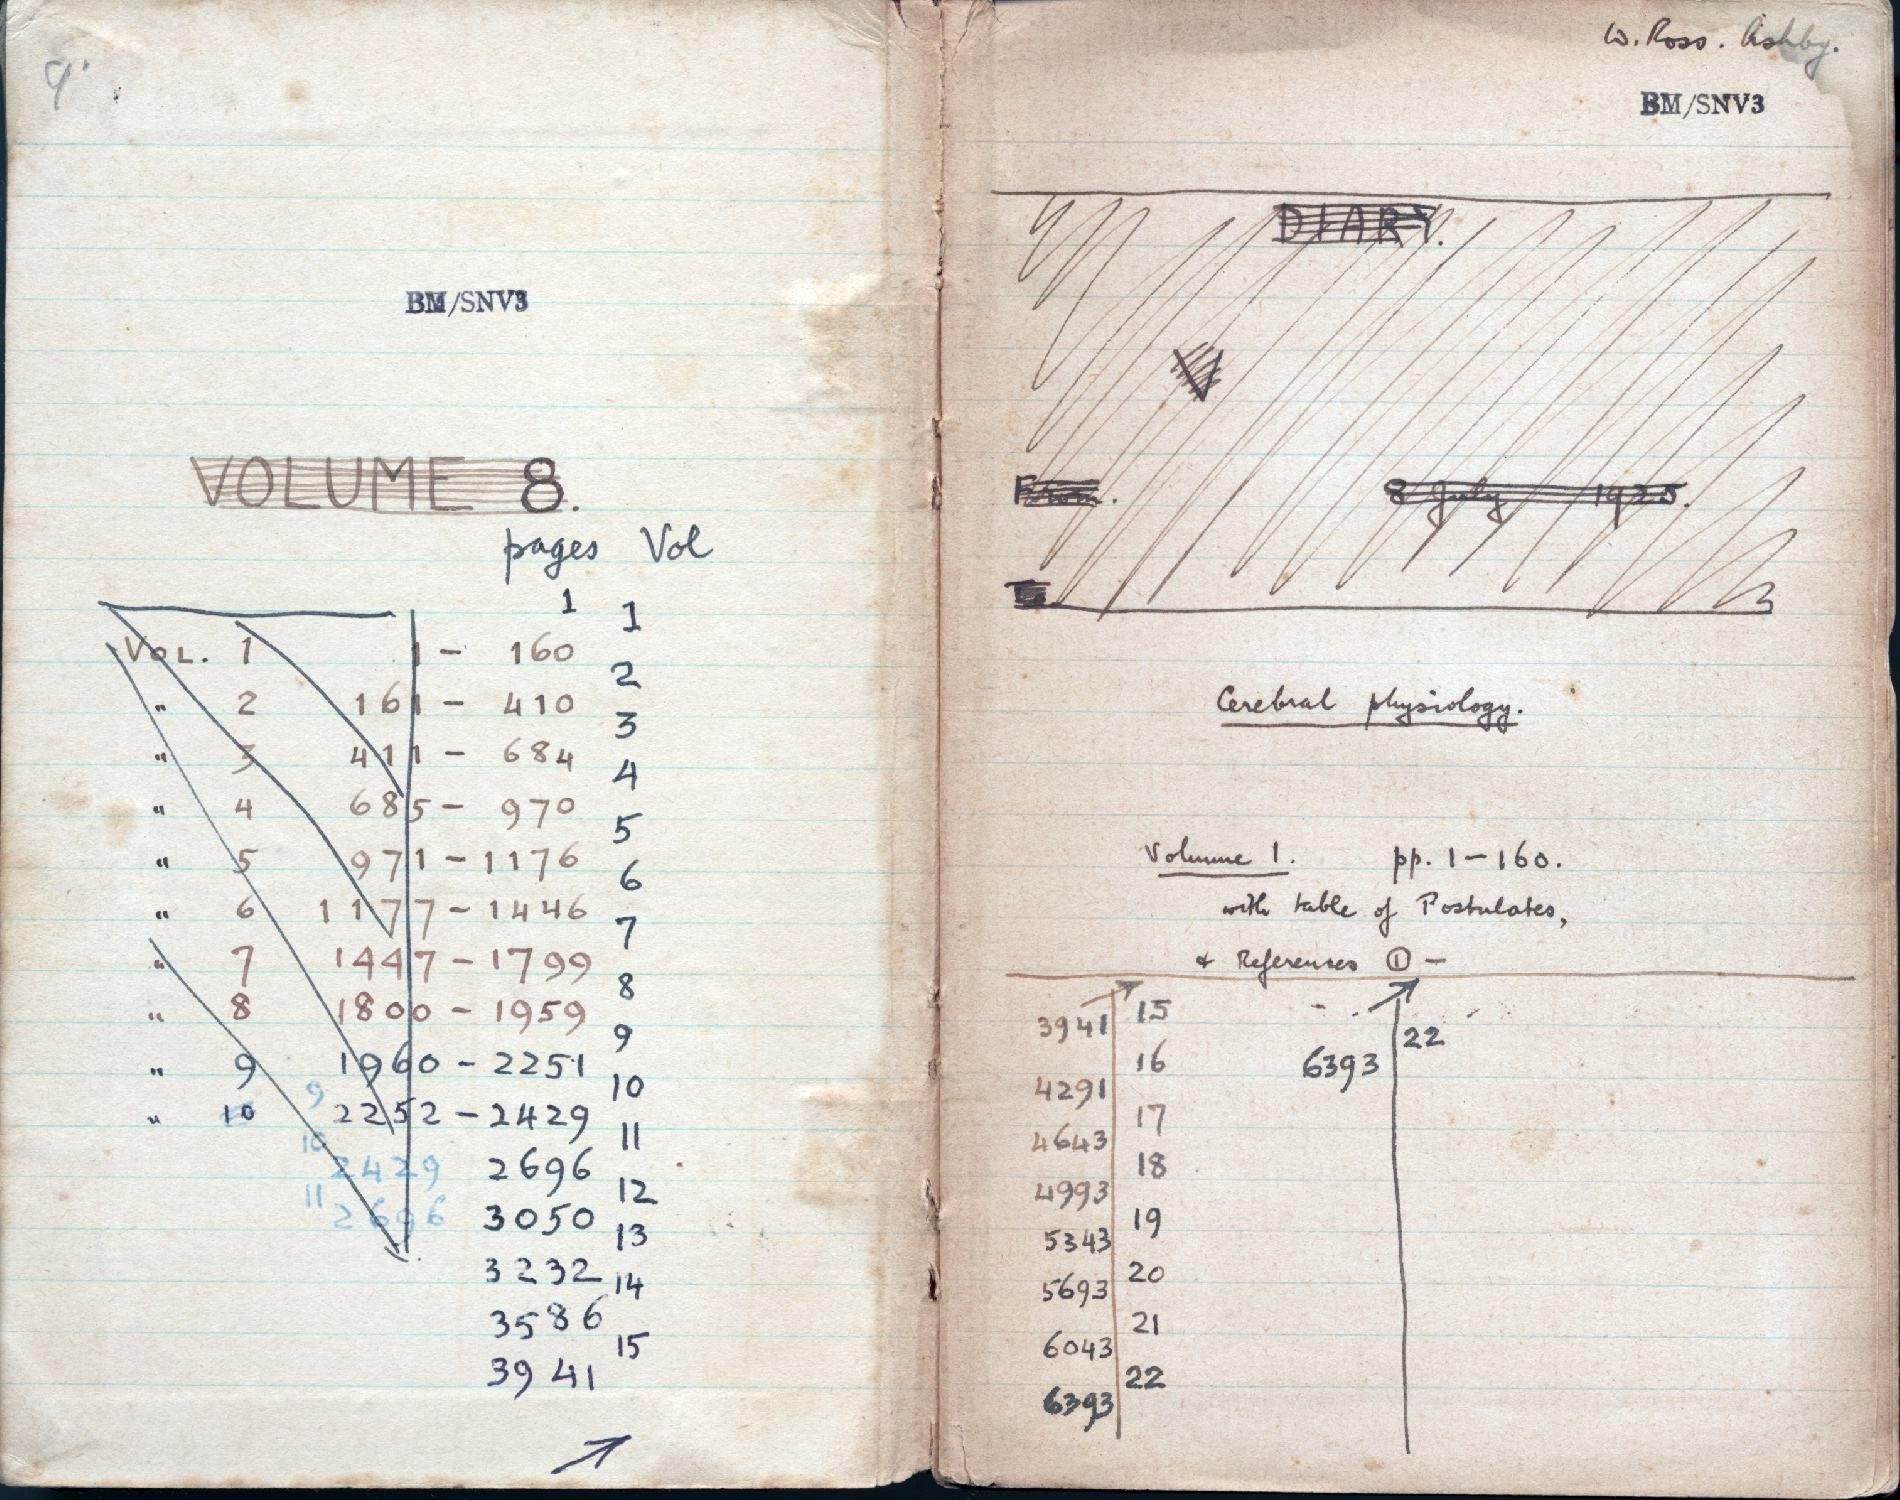 BM/SNV3
VOLUME 8.
pages Vol
1
1
Vol. 1 1 - 160
2
" 2 161 - 410
3
" 3 411 - 684
4
" 4 685 - 970
5
" 5 971 - 1176
6
" 6 1177 - 1446
7
" 7 1447 - 1799
8
" 8 1800 - 1959
9
" 9 1960 - 2251
10
9
" 10 2252 - 2429
11
10
2429 2696
12
11
2696 3050
13
3232
14
3586
15
3941
W. Ross. Ashby.
BM/SNV3
DIARY.
V
From. 8 July 1925.
Cerebral physiology.
Volume 1. pp. 1-160.
with table of Postulates,
+ References ① -
15
3941
22
16 6393
4291
17
4643
18
4993
19
5343
20
5693
21
6043
22
6393